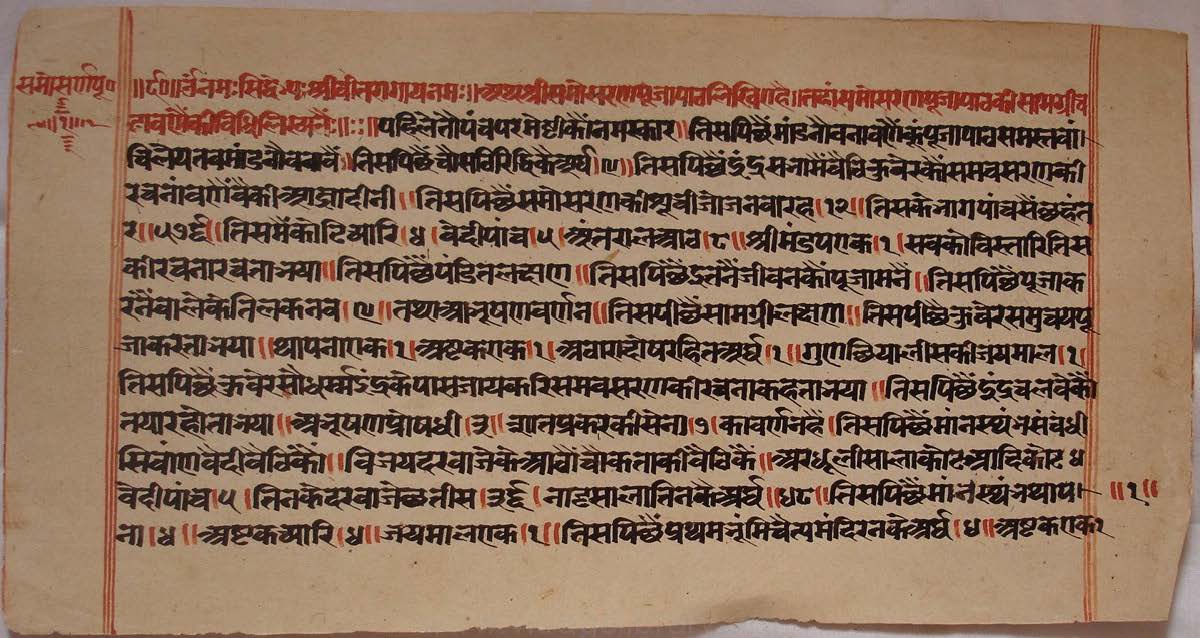 समोसर्णपू॰
॥१॥
॥र्द०॥ॐनमःसिद्धेभ्यःश्रीवीतरागायनमः॥अथश्रीसमोसरणपूजापाठलिखितहै॥तहांसमोसरणपूजापाठकीसामग्रीव
कीविधिलिख्यते॥ः॥पहिलेतौपंचपरमेष्टीकौंनमस्कार॥तिसपिछैमांडनौवनावणैंकूंपूजापाठसमस्तवां।
तिसपिछैचौसठिरिद्धिकेअर्घ।९॥तिसपिछैंइंद्रसनामेंवैठिकुवेरकोंसमवसरणकी
रचनांवणांवैकीआज्ञादीनी॥तिसपिछैंसमोसरणकीपृथ्वीजोजनवारह।१२।तिसकेभागपांचसैछहत
रि।५७६।तिसमैंकोटच्यारि।४।वेदीपांच।५।अंतरालआठ।८॥श्रीमंडपएक।१।सवकोविस्तारितिस
कीरचनारचनाभया॥तिसपिछैंपंडितलक्षण॥तिसपिछैंइतनेंजीवनकोंपूजामनें॥तिसपिछैपूजाक
रनैंवालेकेतिलकनव।९।तथाआभूषणवर्णन॥तिसपीछैंसामग्रीलक्षण॥तिसपीछैकुवेरसमुच्चयपू
जाकरताभया॥थापनाएक।१।अष्टकएक।१।अठारादोषरहितअर्घ।१।गुणछियालीसकीजयमाल।१।
तिसपिछैंकुवेरसौधर्मइंद्रकेपासजायकरिसमवसरणकीरचनाकहताभया॥तिसपिछैंइंद्रचलवेकों
तयारहोताभया॥आभूषणप्रोषधी।३।सातप्रकारकीसेना।७।कावर्णनहै॥तिसपिछैंमांनस्थंभसंवंधी
सिवांणवेदीवैठिकों॥विजयदरवाजेकेआठोंचौकताकीवैठिकें॥अरधूलीसालाकोटआदिकोट४
वेदीपांच।५।तिनकेदरवाजेछतीस।३६।नाट्यसालातिनकेअर्घ।४८।तिसपिछैंमांनस्थंभथाप।
॥१॥
ना।४।अष्टकच्यारि।४॥जयमालएक।१॥तिसपिछैंप्रथमभूंमिचैत्यमंदिरनकेअर्घ।४॥अष्टकएक१